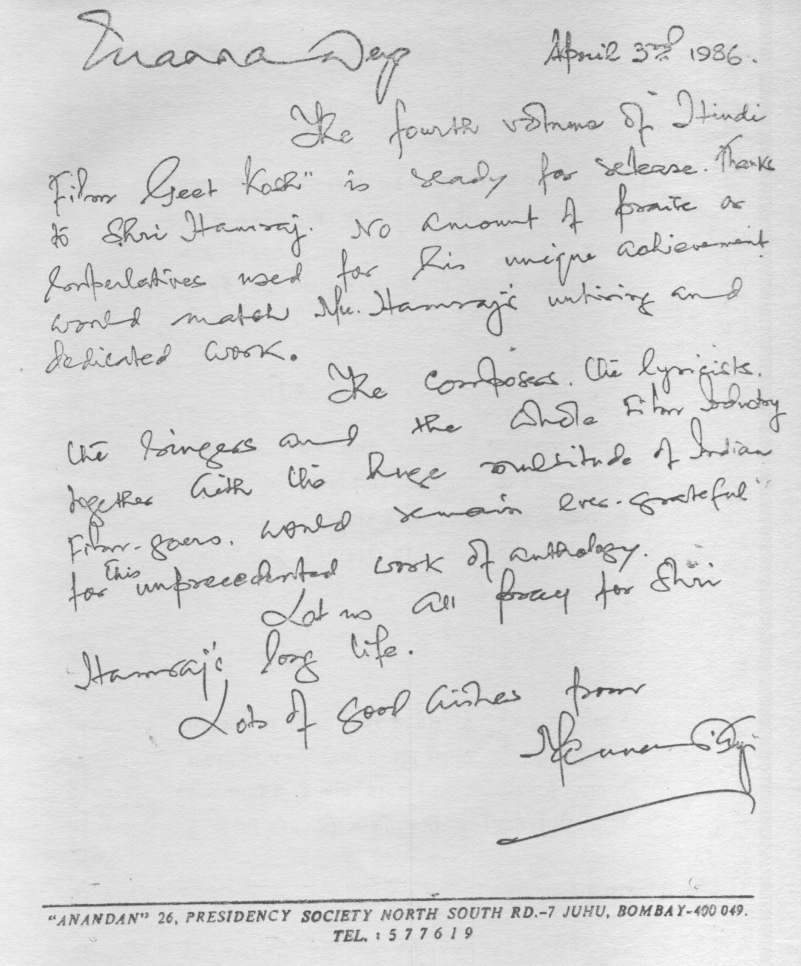 Manna Dey April 3rd 1986.
The fourth volume of "Hindi
Film Geet Kosh" is ready for release. Thanks
to Shri Hamraj. No amount of praise or
superlatives used for his unique achievement
would match Mr. Hamraj's untiring and
dedicated work.
The composers. the lyricists.
the singers and the whole Film Industry
together with the huge multitude of Indian
Film-goers. would remain ever-grateful
for this unprecedented work of anthology.
Let us all pray for Shri
Hamraj's long life.
Lots of good wishes from
Manna Dey
"ANANDAN" 26, PRESIDENCY SOCIETY NORTH SOUTH RD.-7 JUHU, BOMBAY-400 049.
TEL. : 577619